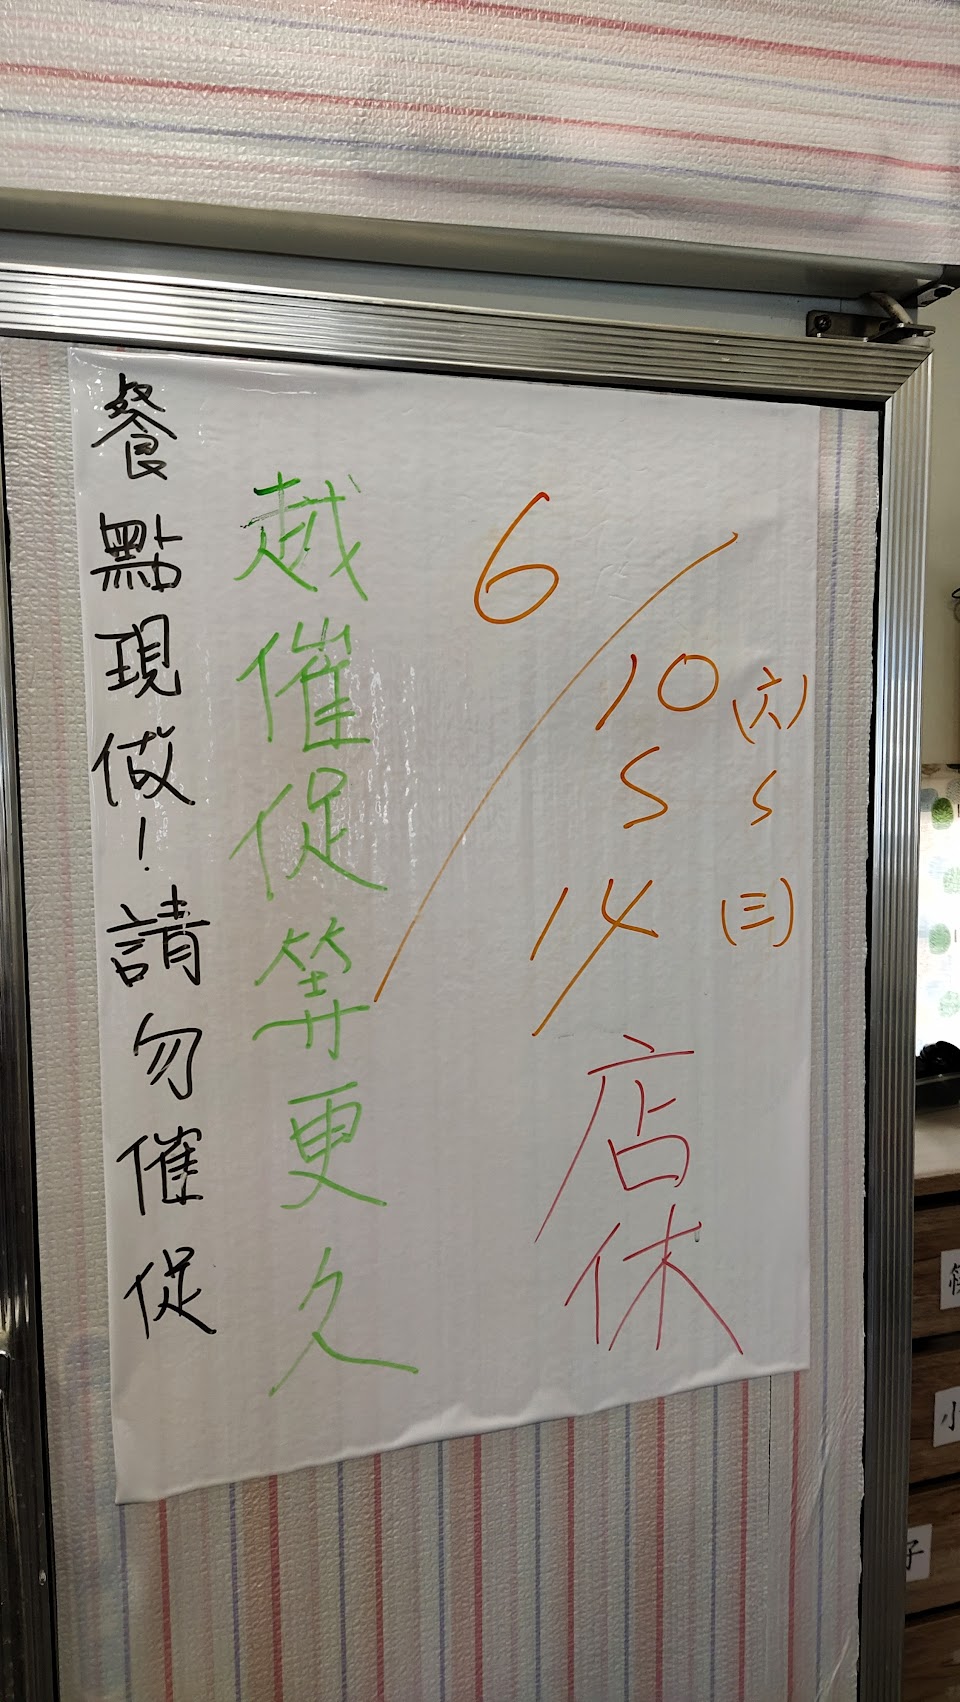 6/10(六)
S S
14(三)
店休
越催促等更久
餐點現做！請勿催促
小
子